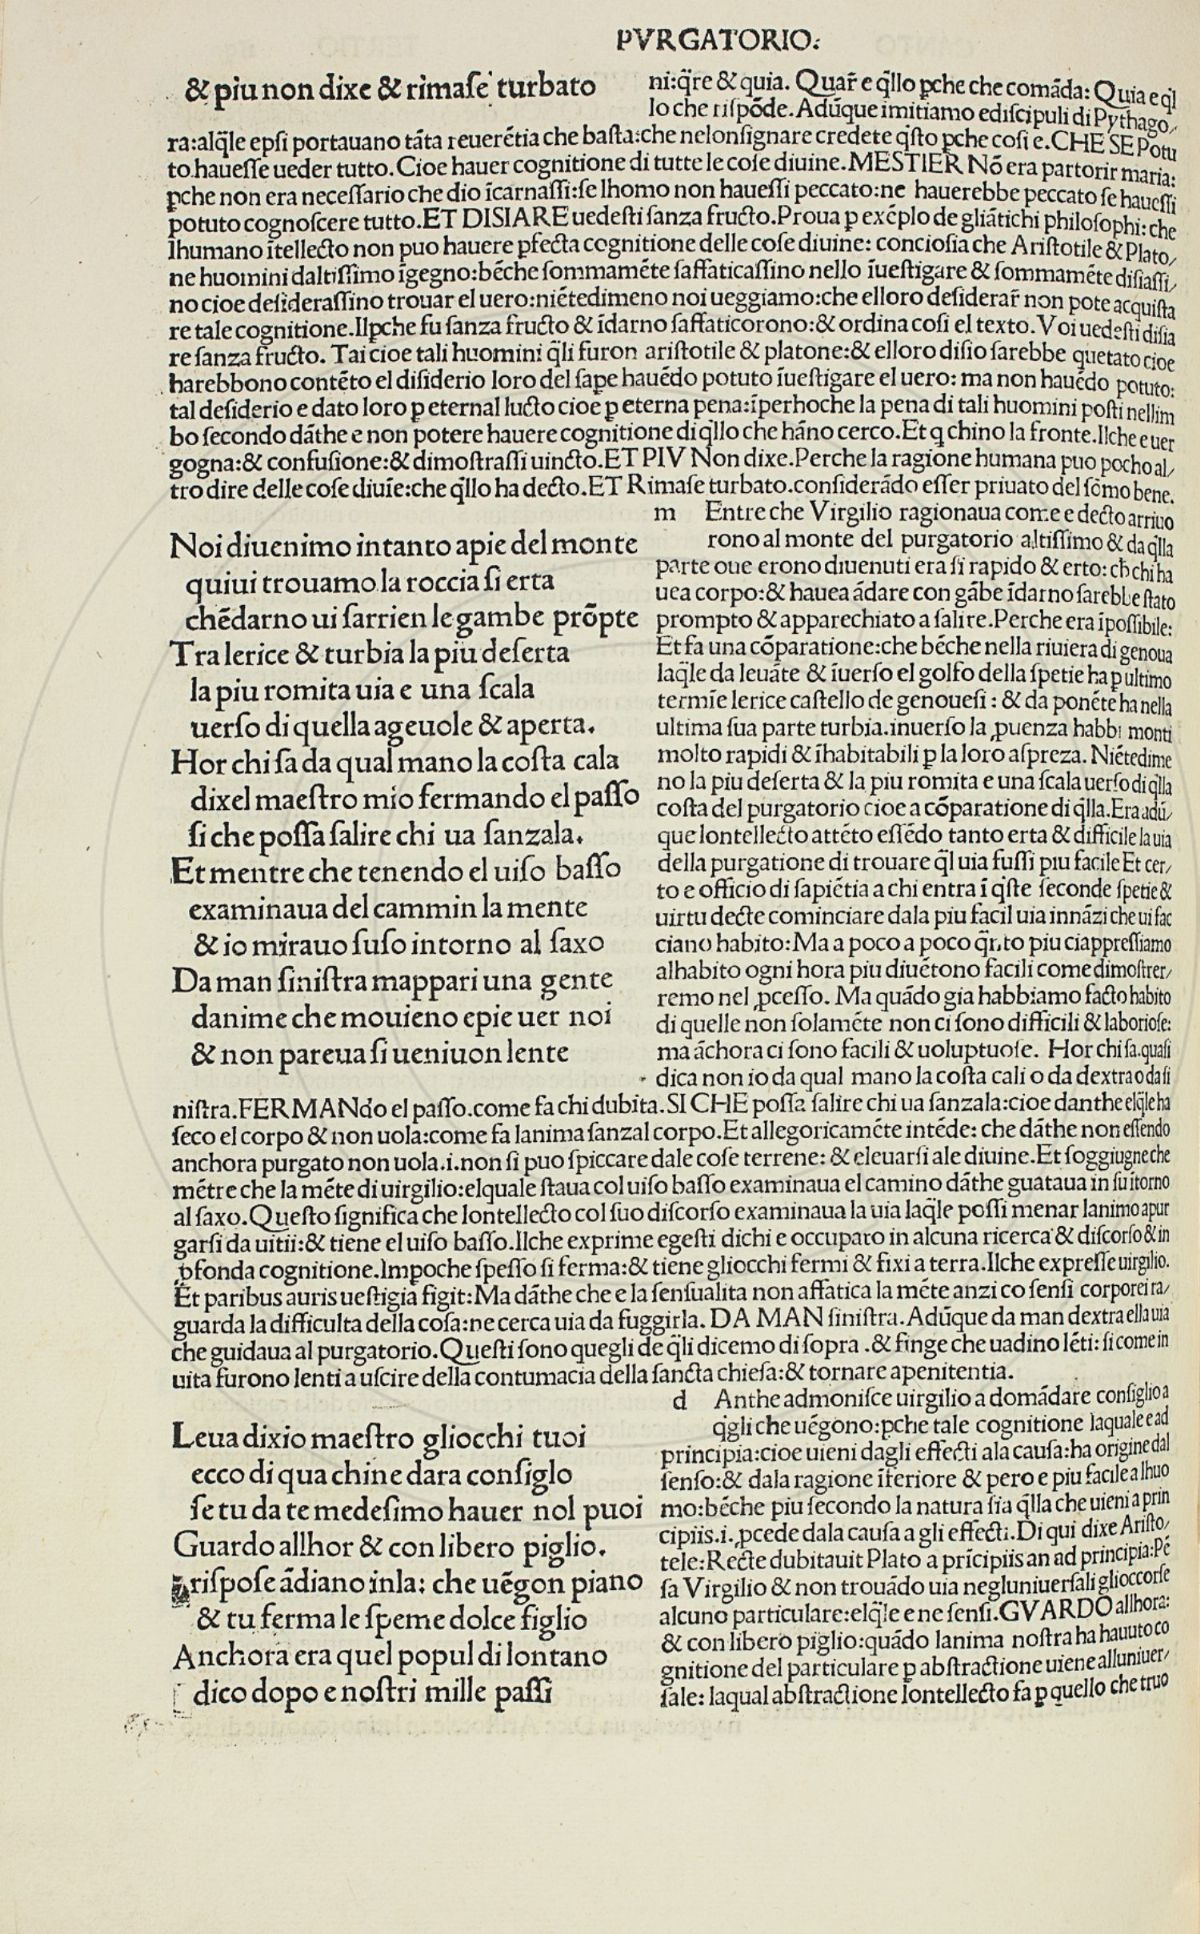 PVRGATORIO:
& piu non dixe & rimase turbato
ni:q̃re & quia. Quar̃ e q̃llo ꝑche che comãda: Quia e q̃l
lo che rispõde. Adũque imitiamo ediscipuli di Pythago/
ra:alq̃le epsi portauano tãta reuerẽtia che basta:che nelonsignare credete q̃sto ꝑche cosi e. CHE SE Potu
to.hauesse ueder tutto. Cioe hauer cognitione di tutte le cose diuine. MESTIER Nõ era partorir maria:
ꝑche non era necessario che dio ĩcarnassi:se lhomo non hauessi peccato:ne hauerebbe peccato se hauessi
potuto cognoscere tutto. ET DISIARE uedesti sanza fructo. Proua ꝑ exẽplo de gliãtichi philosophi: che
lhumano ĩtellecto non puo hauere ꝑfecta cognitione delle cose diuine: conciosia che Aristotile & Plato/
ne huomini daltissimo ĩgegno:bẽche sommamẽte saffaticassino nello ĩuestigare & sommamẽte disiassi/
no cioe desiderassino trouar el uero:niẽtedimeno noi ueggiamo:che elloro desiderar̃ non pote acquista
re tale cognitione. Ilꝑche fu sanza fructo & ĩdarno saffaticorono:& ordina cosi el texto. Voi uedesti disia
re sanza fructo. Tai cioe tali huomini q̃li furon aristotile & platone:& elloro disio sarebbe quetato cioe
harebbono contẽto el disiderio loro del sape hauẽdo potuto ĩuestigare el uero: ma non hauẽdo potuto:
tal desiderio e dato loro ꝑ eternal lucto cioe ꝑ eterna pena:ĩperhoche la pena di tali huomini posti nellim
bo secondo dãthe e non potere hauere cognitione di q̃llo che hãno cerco. Et q chino la fronte. Ilche e uer
gogna:& confusione:& dimostrassi uincto. ET PIV Non dixe. Perche la ragione humana puo pocho al/
tro dire delle cose diuiẽ:che q̃llo ha decto. ET Rimase turbato.considerãdo esser priuato del sõmo bene.
Noi diuenimo intanto apie del monte
quiui trouamo la roccia si erta
chẽdarno ui sarrien le gambe prõpte
Tra lerice & turbia la piu deserta
la piu romita uia e una scala
uerso di quella ageuole & aperta.
Hor chi sa da qual mano la costa cala
dixel maestro mio fermando el passo
si che possa salire chi ua sanzala.
Et mentre che tenendo el uiso basso
examinaua del cammin la mente
& io mirauo suso intorno al saxo
Da man sinistra mappari una gente
danime che mouieno epie uer noi
& non pareua si ueniuon lente
m Entre che Virgilio ragionaua come e decto arriuo
rono al monte del purgatorio altissimo & da q̃lla
parte oue erono diuenuti era si rapido & erto: ch̃ chi ha
uea corpo:& hauea ãdare con gãbe ĩdarno sarebbe stato
prompto & apparechiato a salire. Perche era ĩpossibile:
Et fa una cõparatione:che bẽche nella riuiera di genoua
laq̃le da leuãte & ĩuerso el golfo della spetie ha ꝑ ultimo
termĩe lerice castello de genouesi : & da ponẽte ha nella
ultima sua parte turbia.inuerso la ꝓuenza habbi monti
molto rapidi & ĩhabitabili ꝑ la loro asprezza. Niẽtedime
no la piu deserta & la piu romita e una scala uerso di q̃lla
costa del purgatorio cioe a cõparatione di q̃lla. Era adũ/
que lontellecto attẽto essẽdo tanto erta & difficile la uia
della purgatione di trouare q̃l uia fussi piu facile Et cer/
to e officio di sapiẽtia a chi entra ĩ q̃ste seconde spetie &
uirtu decte cominciare dala piu facil uia innãzi che ui fac
ciano habito: Ma a poco a poco q̃nto piu ciappressiamo
alhabito ogni hora piu diuẽtono facili come dimostrer/
remo nel ꝓcesso. Ma quãdo gia habbiamo facto habito
di quelle non solamẽte non ci sono difficili & laboriose:
ma ãchora ci sono facili & uoluptuose. Hor chi sa.quasi
dica non io da qual mano la costa cali o da dextra o da si
nistra. FERMANdo el passo.come fa chi dubita. SI CHE possa salire chi ua sanzala:cioe danthe elq̃le ha
seco el corpo & non uola:come fa lanima sanzal corpo. Et allegoricamẽte intẽde: che dãthe non essendo
anchora purgato non uola.i.non si puo spiccare dale cose terrene: & eleuarsi ale diuine. Et soggiugne che
mẽtre che la mẽte di uirgilio:elquale staua col uiso basso examinaua el camino dãthe guataua in su itorno
al saxo. Questo significa che lontellecto col suo discorso examinaua la uia laq̃le possi menar lanimo a pur
garsi da uitii:& tiene el uiso basso. Ilche exprime egesti dichi e occupato in alcuna ricerca & discorso & in
ꝓfonda cognitione. Impoche spesso si ferma:& tiene gliocchi fermi & fixi a terra. Ilche expresse uirgilio.
Et paribus auris uestigia figit: Ma dãthe che e la sensualita non affatica la mẽte anzi co sensi corporei ra/
guarda la difficulta della cosa:ne cerca uia da fuggirla. DA MAN sinistra. Adũque da man dextra ella uia
che guidaua al purgatorio. Questi sono quegli de q̃li dicemo di sopra .& finge che uadino lẽti: si come in
uita furono lenti a uscire della contumacia della sancta chiesa:& tornare a penitentia.
Leua dixio maestro gliocchi tuoi
ecco di qua chi ne dara consiglo
se tu da te medesimo hauer nol puoi
Guardo allhor & con libero piglio.
rispose ãdiano in la: che uẽgon piano
& tu ferma le speme dolce figlio
Anchora era quel popul di lontano
dico dopo e nostri mille passi
d Anthe admonisce uirgilio a domãdare consiglio a
q̃gli che uẽgono:ꝑche tale cognitione laquale e ad
principia:cioe uieni dagli effecti ala causa:ha origine dal
senso:& dala ragione ĩferiore & pero e piu facile a lhuo
mo:bẽche piu secondo la natura sia q̃lla che uieni a prin
cipiis.i.ꝓcede dala causa a gli effecti. Di qui dixe Aristo/
tele: Recte dubitauit Plato a prĩcipiis an ad principia: Pẽ
sa Virgilio & non trouãdo uia negluniuersali glioccorse
alcuno particulare:elq̃le e ne sensi. GVARDO allhora:
& con libero piglio:quãdo lanima nostra ha hauuto co
gnitione del particulare ꝑ abstractione uiene alluniuer/
sale: laqual abstractione lontellecto fa ꝑ quello che truo